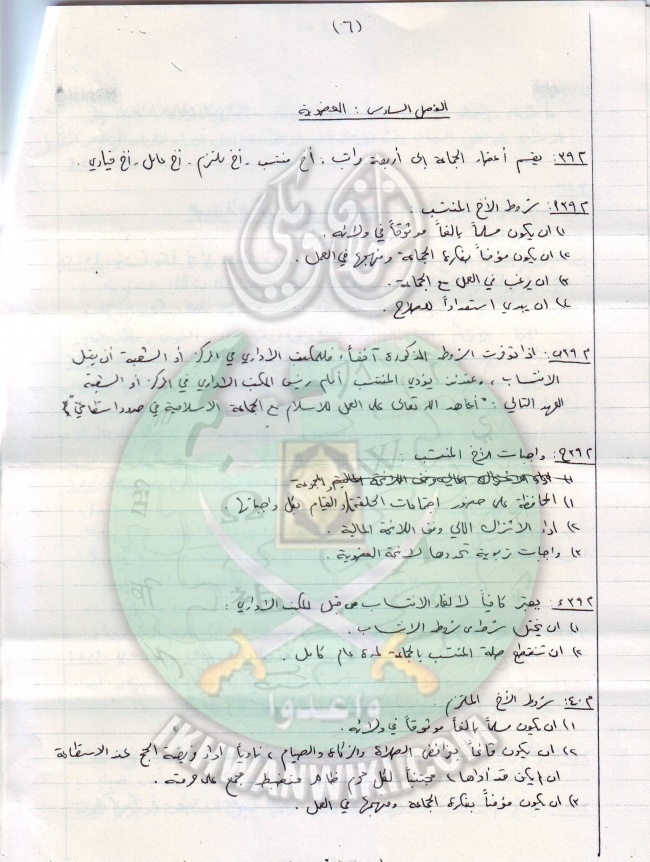 (٦)
الفصل السادس : العضوية
م٣٩: يقسم أعضاء الجماعة إلى أربعة مراتب : أخ منتسب - أخ ملتزم - أخ عامل - أخ قيادي .
م٣٩أ: شروط الأخ المنتسب :
١) ان يكون مسلماً بالغاً موثوقاً في ولائه .
٢) ان يكون مؤمناً بفكرة الجماعة ومنهجها في العمل .
٣) ان يرغب في العمل مع الجماعة .
٤) ان يبدي استعداداً للصلاح .
م٣٩ب: اذا توفرت الشروط المذكورة آنفاً ، فللمكتب الاداري في المركز أو الشعبة أن يقبل
الانتساب ، وعندئذ يؤدي المنتسب أمام رئيس المكتب الاداري في المركز أو الشعبة
العهد التالي : "أعاهد الله تعالى على العمل للاسلام مع الجماعة الاسلامية في حدود استطاعتي"
م٣٩ج: واجبات الأخ المنتسب :
١) المحافظة على حضور اجتماعات الحلقة والقيام بكل واجباتها .
٢) اداء الاشتراك المالي وفق اللائحة المالية .
٣) واجبات تربوية تحددها لائحة العضوية .
م٣٩د: يعتبر كافياً لالغاء الانتساب من قبل المكتب الاداري :
١) ان يختل شرط من شروط الانتساب .
٢) ان تنقطع صلة المنتسب بالجماعة لمدة عام كامل .
م٤٠: شروط الأخ الملتزم :
١) ان يكون مسلماً بالغاً موثوقاً في ولائه .
٢) ان يكون قائماً بفرائض الصلاة والزكاة والصيام ، ناوياً اداء فريضة الحج عند الاستطاعة
ان لم يكن قد أداها ، مجتنباً لكل محرم ظاهر منضبط مجمع على حرمته .
٣) ان يكون مؤمناً بفكرة الجماعة ومنهجها في العمل .
إخوان ويكي
وأعدوا
IKHWANWIKI.COM